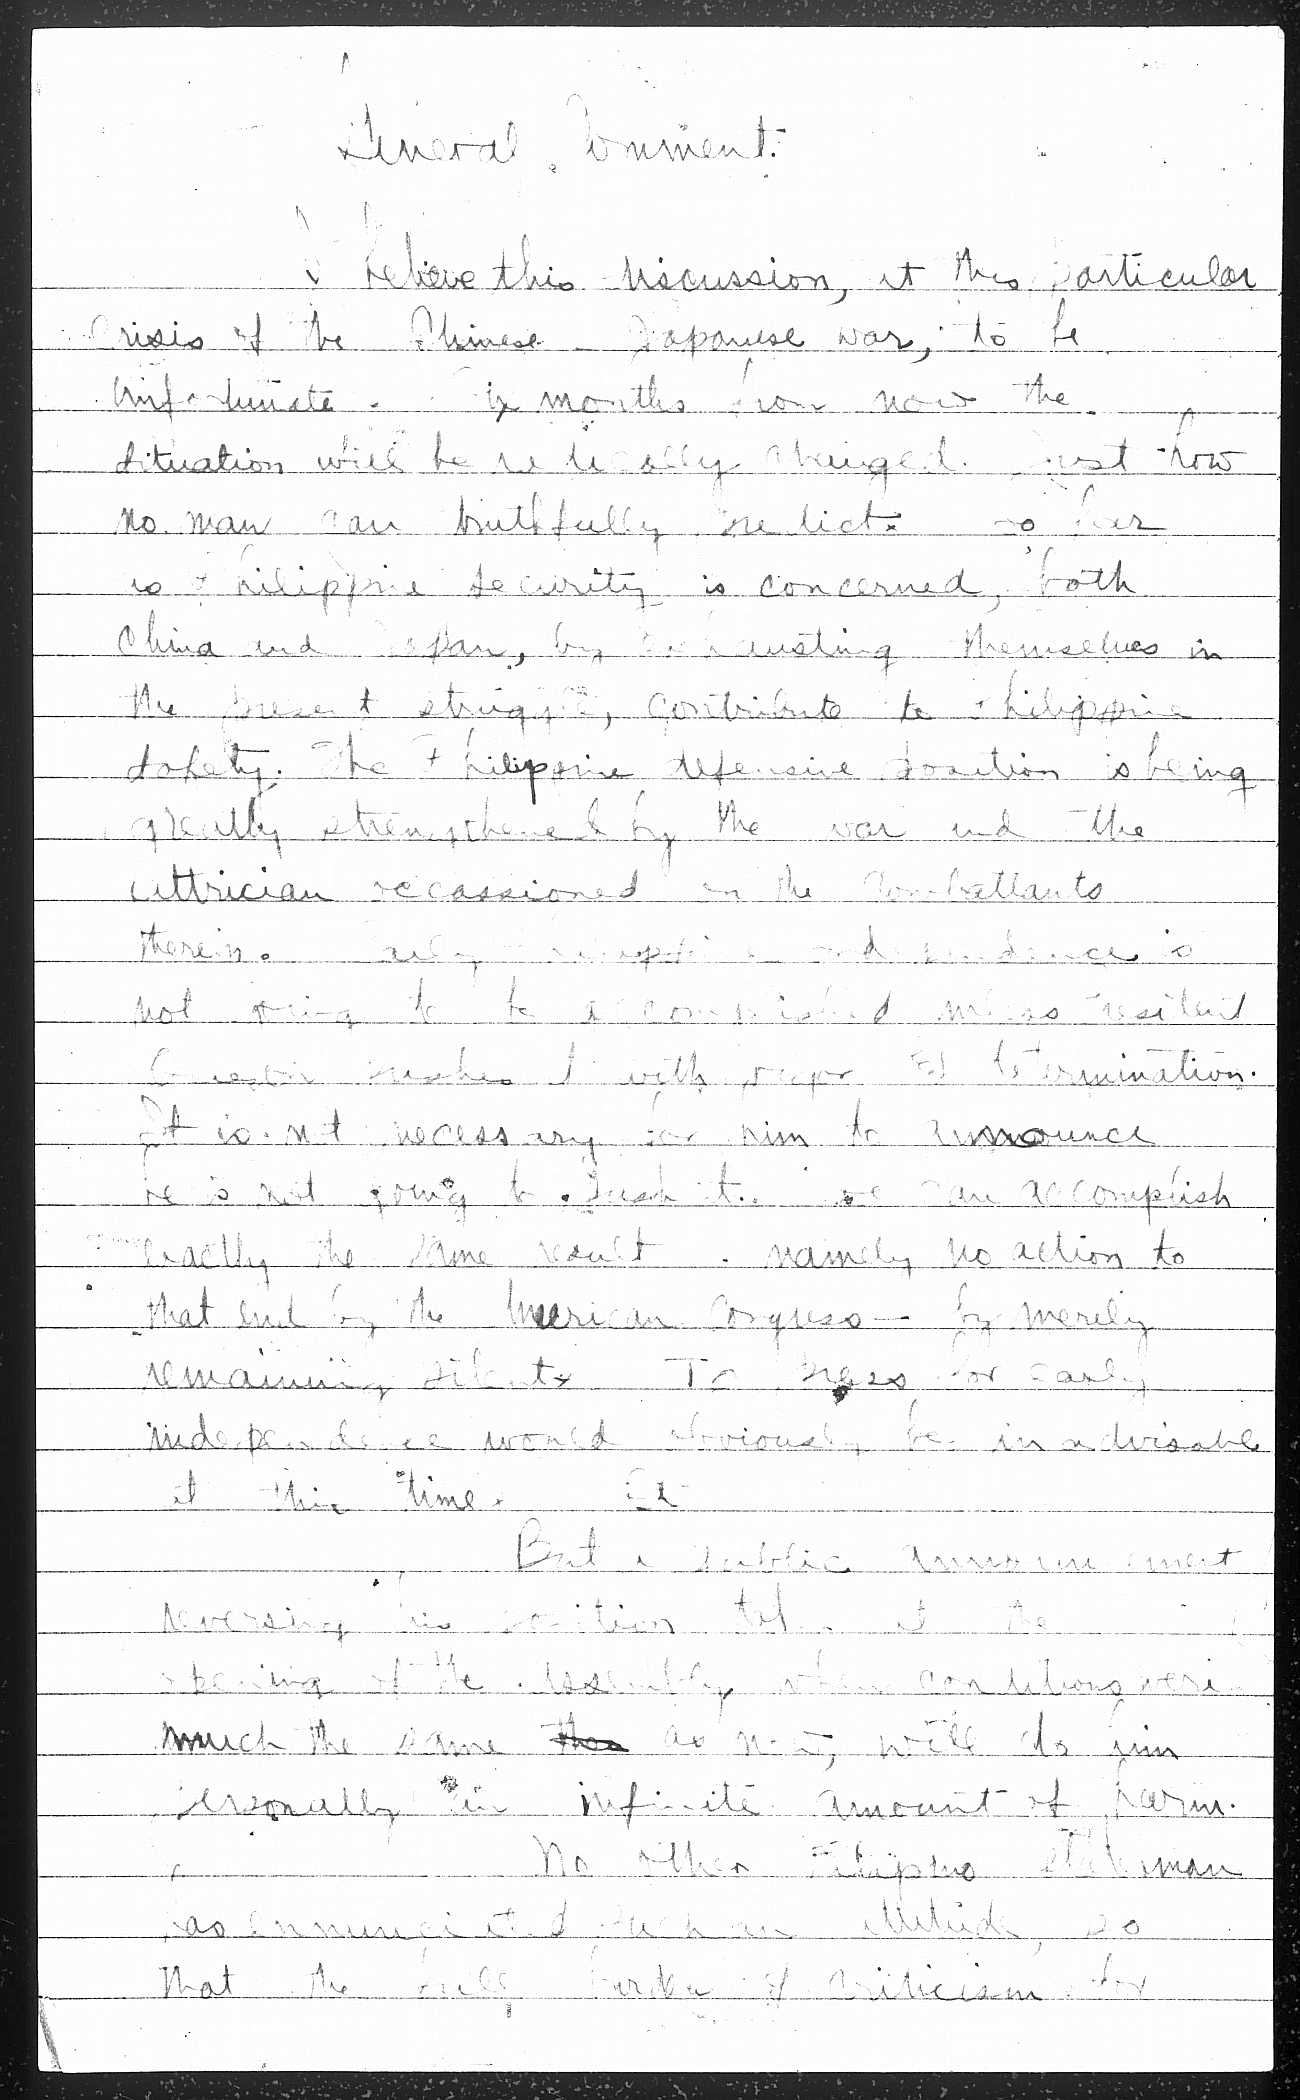 General Comment.
I believe this discussion, at this particular
crisis of the Chinese-Japanese war, to be
unfortunate. Six months from now the
situation will be radically changed. Just how
no man can truthfully predict. So far
as Philippine security is concerned, both
China and Japan, by exhausting themselves in
the present struggle, contribute to Philippine
safety. The Philippine defensive position is being
greatly strengthened by the war and the
attrician occassioned on the combattants
therein. Early Philippine independence is
not going to be accomplished unless President
Quezon pushes it with vigor & determination.
It is not necessary for him to announce
he is not going to push it. He can accomplish
exactly the same result - namely no action to
that end by the American Congress - by merely
remaining silent. To press for early
independence would obviously be inadvisable
at this time.
But a public announcement
reversing his position at the
opening of the Assembly when conditions were
much the same as now, will do him
personally an infinite amount of harm.
No other Filipino statesman
has annunciated such an attitude, so
that the full burden of criticism for